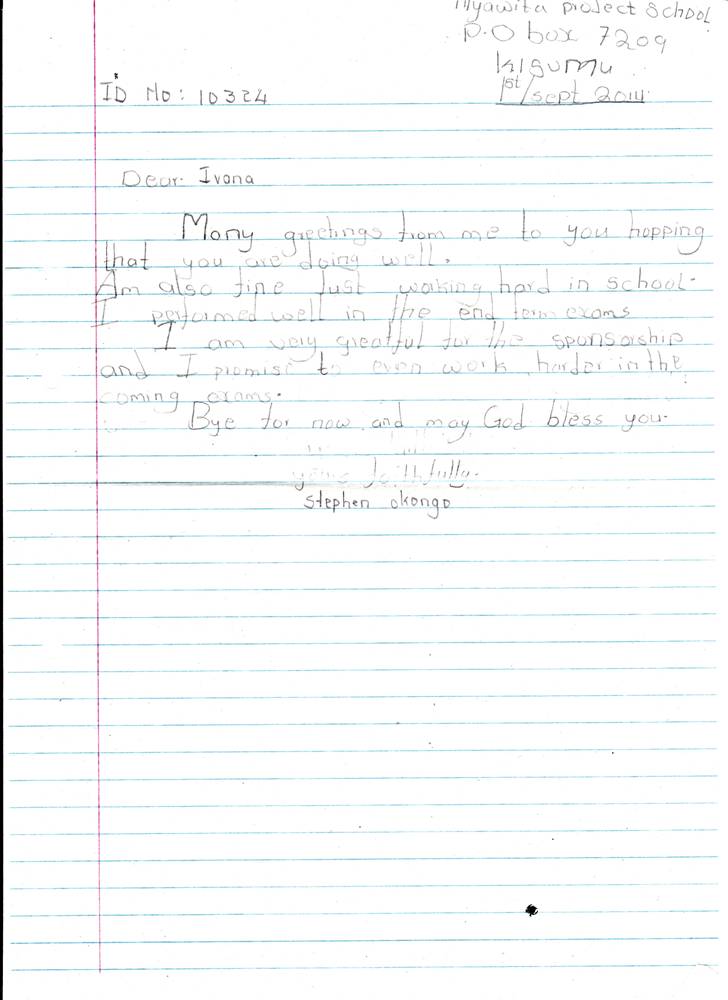 Nyawita project School
P.O box 7209
Kisumu
1st/sept 2014
ID No: 10324
Dear Ivona
Many greetings from me to you hopping
that you are doing well.
Am also fine Just working hard in school.
I performed well in the end term exams
I am very greatful for the sponsorship
and I promise to even work harder in the
coming exams.
Bye for now and may God bless you.
yours faithfully.
Stephen Okongo